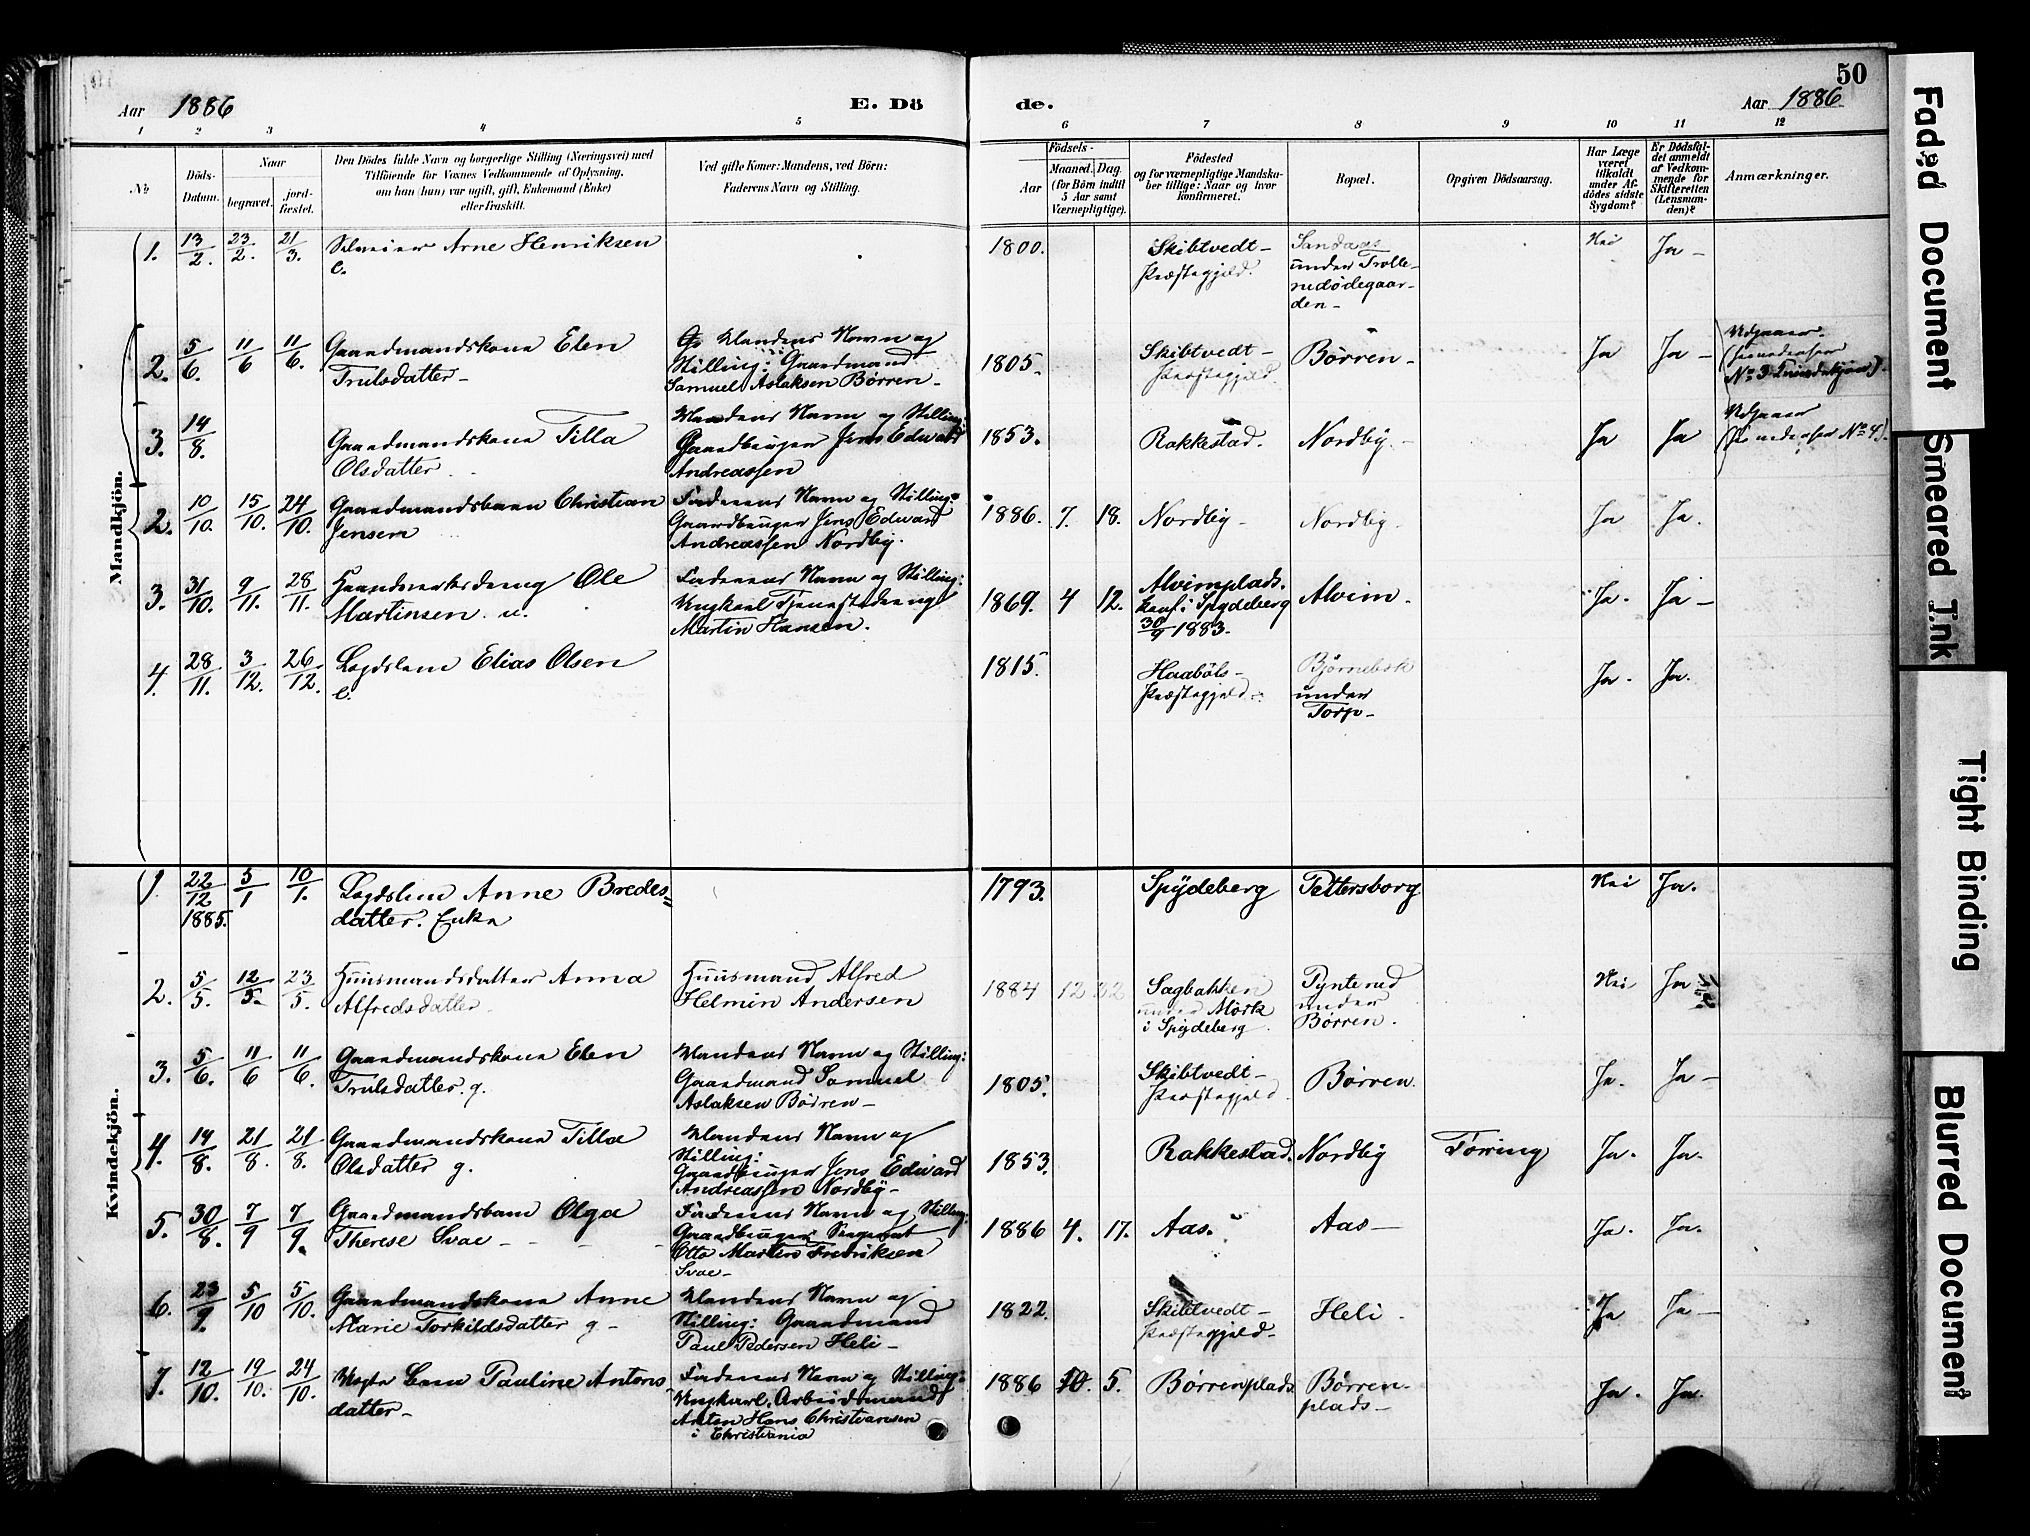 50
Aar 1886
E. Döde.
Aar 1886
1 2 3 4 5 6 7 8 9 10 11 12
No
Döds-
Datum.
Naar
begravet.
jord-
fæstet.
Den Dödes fulde Navn og borgerlige Stilling (Næringsvei) med
Tilföiende for Voxnes Vedkommende af Oplysning,
om han (hun) var ugift, gift, Enkemand (Enke)
eller fraskilt.
Ved gifte Koner: Mandens, ved Börn:
Faderens Navn og Stilling.
Födsels-
Aar
Maaned. Dag.
(for Börn indtil
5 Aar samt
Værnepligtige).
Födested
og for værnepligtige Mandska-
ber tillige: Naar og hvor
konfirmeret.
Bopæl.
Opgiven Dödsaarsag.
Har Læge
været
tilkaldt
under Af-
dödes sidste
Sygdom?
Er Dödsfal-
det anmeldt
af Vedkom-
mende for
Skifteretten
(Lensman-
den)?
Anmærkninger.
Mandkjön.
1. 13/2. 23/2. 21/3. Arne Henriksen 1800. Skibtvedt- Sandaas Nei Ja-
e. Præstegjeld. under Trolle-
rudødegaar-
den-
2. 5/6. 11/6 11/6. Gaardmandskona Elen Mandens Navn og 1805. Skibtvedt- Børren- Ja Ja- Udgaaer
Trulsdatter- Stilling: Gaardmand Præstegjeld. (se nedenfor
Samuel Aslaksen Børren- No 3 Kvindekjøn).
3. 14/8. Gaardmandskona Tilla Mandens Navn og Stilling: 1853. Rakkestad. Nordby.- Ja Ja Udgaaer
Olsdatter Gaardbruger Jens Edward (se nedenfor No 4).
Andreassen
2. 10/10. 15/10. 24/10. Gaardmandsbarn Christian Faderens Navn og Stilling: 1886. 7. 18. Nordby- Nordby- Ja Ja.
Jensen Gaardbruger Jens Edward
Andreassen Nordby.
3. 31/10. 9/11. 28/11. Haandverksdreng Ole Faderens Navn og Stilling: 1869. 4 12. Alvimplads. Alvim. Ja. Ja-
Martinsen. u. Ungkarl Tjenestedreng konf. i Spydeberg
Martin Hansen. 30/9 1883.
4. 28/11. 3/12. 26/12. Lægdslem Elias Olsen 1815. Haabøls- Bjørnebek Ja. Ja.
e. Præstegjeld- under
Torp-
Kvindekjön.
1. 22/12 5/1 10/1. Lægdslem Anne Bredes= 1793. Spydeberg Pettersborg Nei Ja.
1885. datter. Enke
2. 5/5. 12/5. 23/5. Huusmandsdatter Anna Huusmand Alfred 1884 12 22 Sagbakken Pynterud Nei Ja
Alfredsdatter. Helmin Andersen under Mörk under
i Spydeberg. Børren.
3. 5/6. 11/6 11/6. Gaardmandskona Elen Mandens Navn og Stilling: 1805. Skibtvedt- Børren. Ja. Ja-
Trulsdatter. g. Gaardmand Samuel Præstegjeld.
Aslaksen Børren-
4. 14/8. 21/8. 21/8. Gaardmandskona Tilla Mandens Navn og 1853. Rakkestad. Nordby Tøring Ja. Ja.
Olsdatter g. Stilling:
Gaardbruger Jens Edward
Andreassen Nordby-
5. 30/8. 7/9 7/9. Gaardmandsbarn Olga Faderens Navn og Stilling: 1886 4. 17. Aas. Aas- Ja. Ja.
Therese Svae- Gaardbruger Sergeant
Otto Martin Fredriksen
Svae-
6. 23/9. 5/10 5/10. Gaardmandskona Anne Mandens Navn og 1822. Skibtvedt- Heli. Ja Ja-
Marie Torkildsdatter g- Stilling: Gaardmand Præstegjeld.
Paul Pedersen Heli-
7. 12/10. 19/10. 24/10. Uægte Barn Pauline Antons Faderens Navn og Stilling: 1886 10. 5. Børrenplads. Børren- Ja. Ja.
datter- Ungkarl, Arbeidsmand plads-
Anton Hans Christiansen
i Christiania
Faded Document
Smeared Ink
Tight Binding
Blurred Document